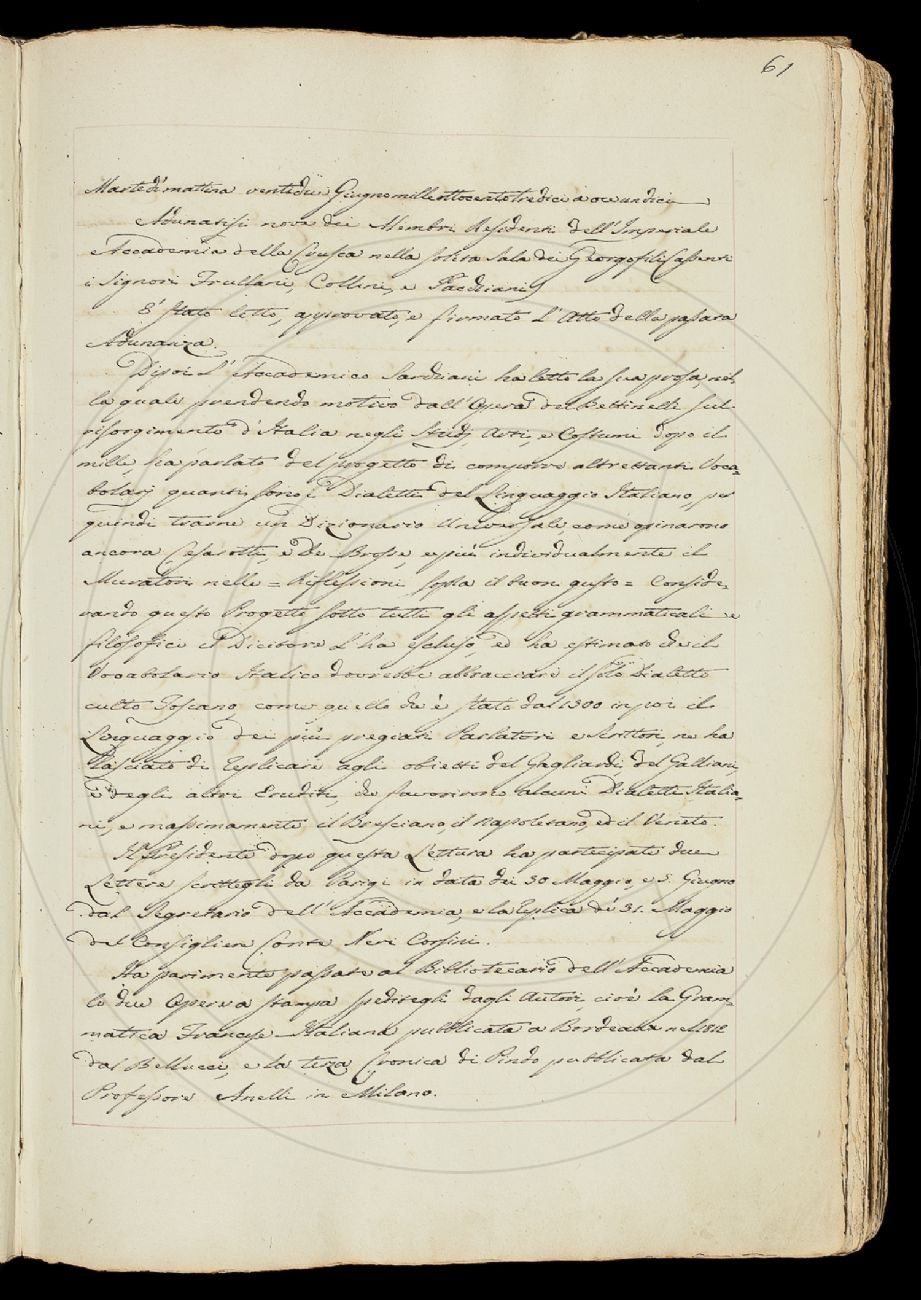 61
Martedì mattina ventidue Giugno mille ottocento tredici a ore undici
Adunatisi nove dei Membri Residenti dell'Imperiale
Accademia della Crusca nella solita Sala dei Georgofili, assenti
i Signori Frullani, Collini, e
E' stato letto, approvato, e firmato l'Atto della passata
Adunanza.
Dipoi l'Accademico Sarchiani ha letto la sua prosa, nel-
la quale prendendo motivo dall'Opera del Bettinelli sul
risorgimento d'Italia negli Studj, Arti, e Costumi dopo il
mille, ha parlato del progetto di comporre altrettanti Voca=
bolarj quanti sono i Dialetti del Linguaggio Italiano, per
quindi trarne un Dizionario Universale, come opinarono
ancora Cesarotti, e De-Brosse, e più individualmente il
Muratori nelle = Riflessioni sopra il buon gusto = Conside-
rando questo Progetto sotto tutti gli aspetti grammaticali e
filosofici il Dicitore l'ha escluso, ed ha estimato che il
Vocabolario Italico dovrebbe abbracciare il solo Dialetto
culto Toscano, come quello che è stato dal 1300 in poi il
Linguaggio dei più pregiati Parlatori e Scrittori, ne ha
lasciato di replicare agli obietti del Gagliardi, del Galliani,
e degli altri Eruditi, che favorirono alcuni Dialetti Italia=
ni, e massimamente il Bresciano, il Napoletano, ed il Veneto.
Il Presidente dopo questa Lettura ha partecipato due
Lettere scrittegli da Parigi in data dei 30 Maggio, e 5. Giugno
dal Segretario dell'Accademia, e la replica de' 31. Maggio
del Consigliere Conte Neri Corsini.
Ha parimente passate al Bibliotecario dell'Accademia
le due Opere a stampa speditegli dagli Autori, cioè la Gram=
matica Francese-Italiana pubblicata a Bordeaux nel 1812
dal Bellucci, e la terza Cronica di Pindo pubblicata dal
Professore Anelli in Milano.